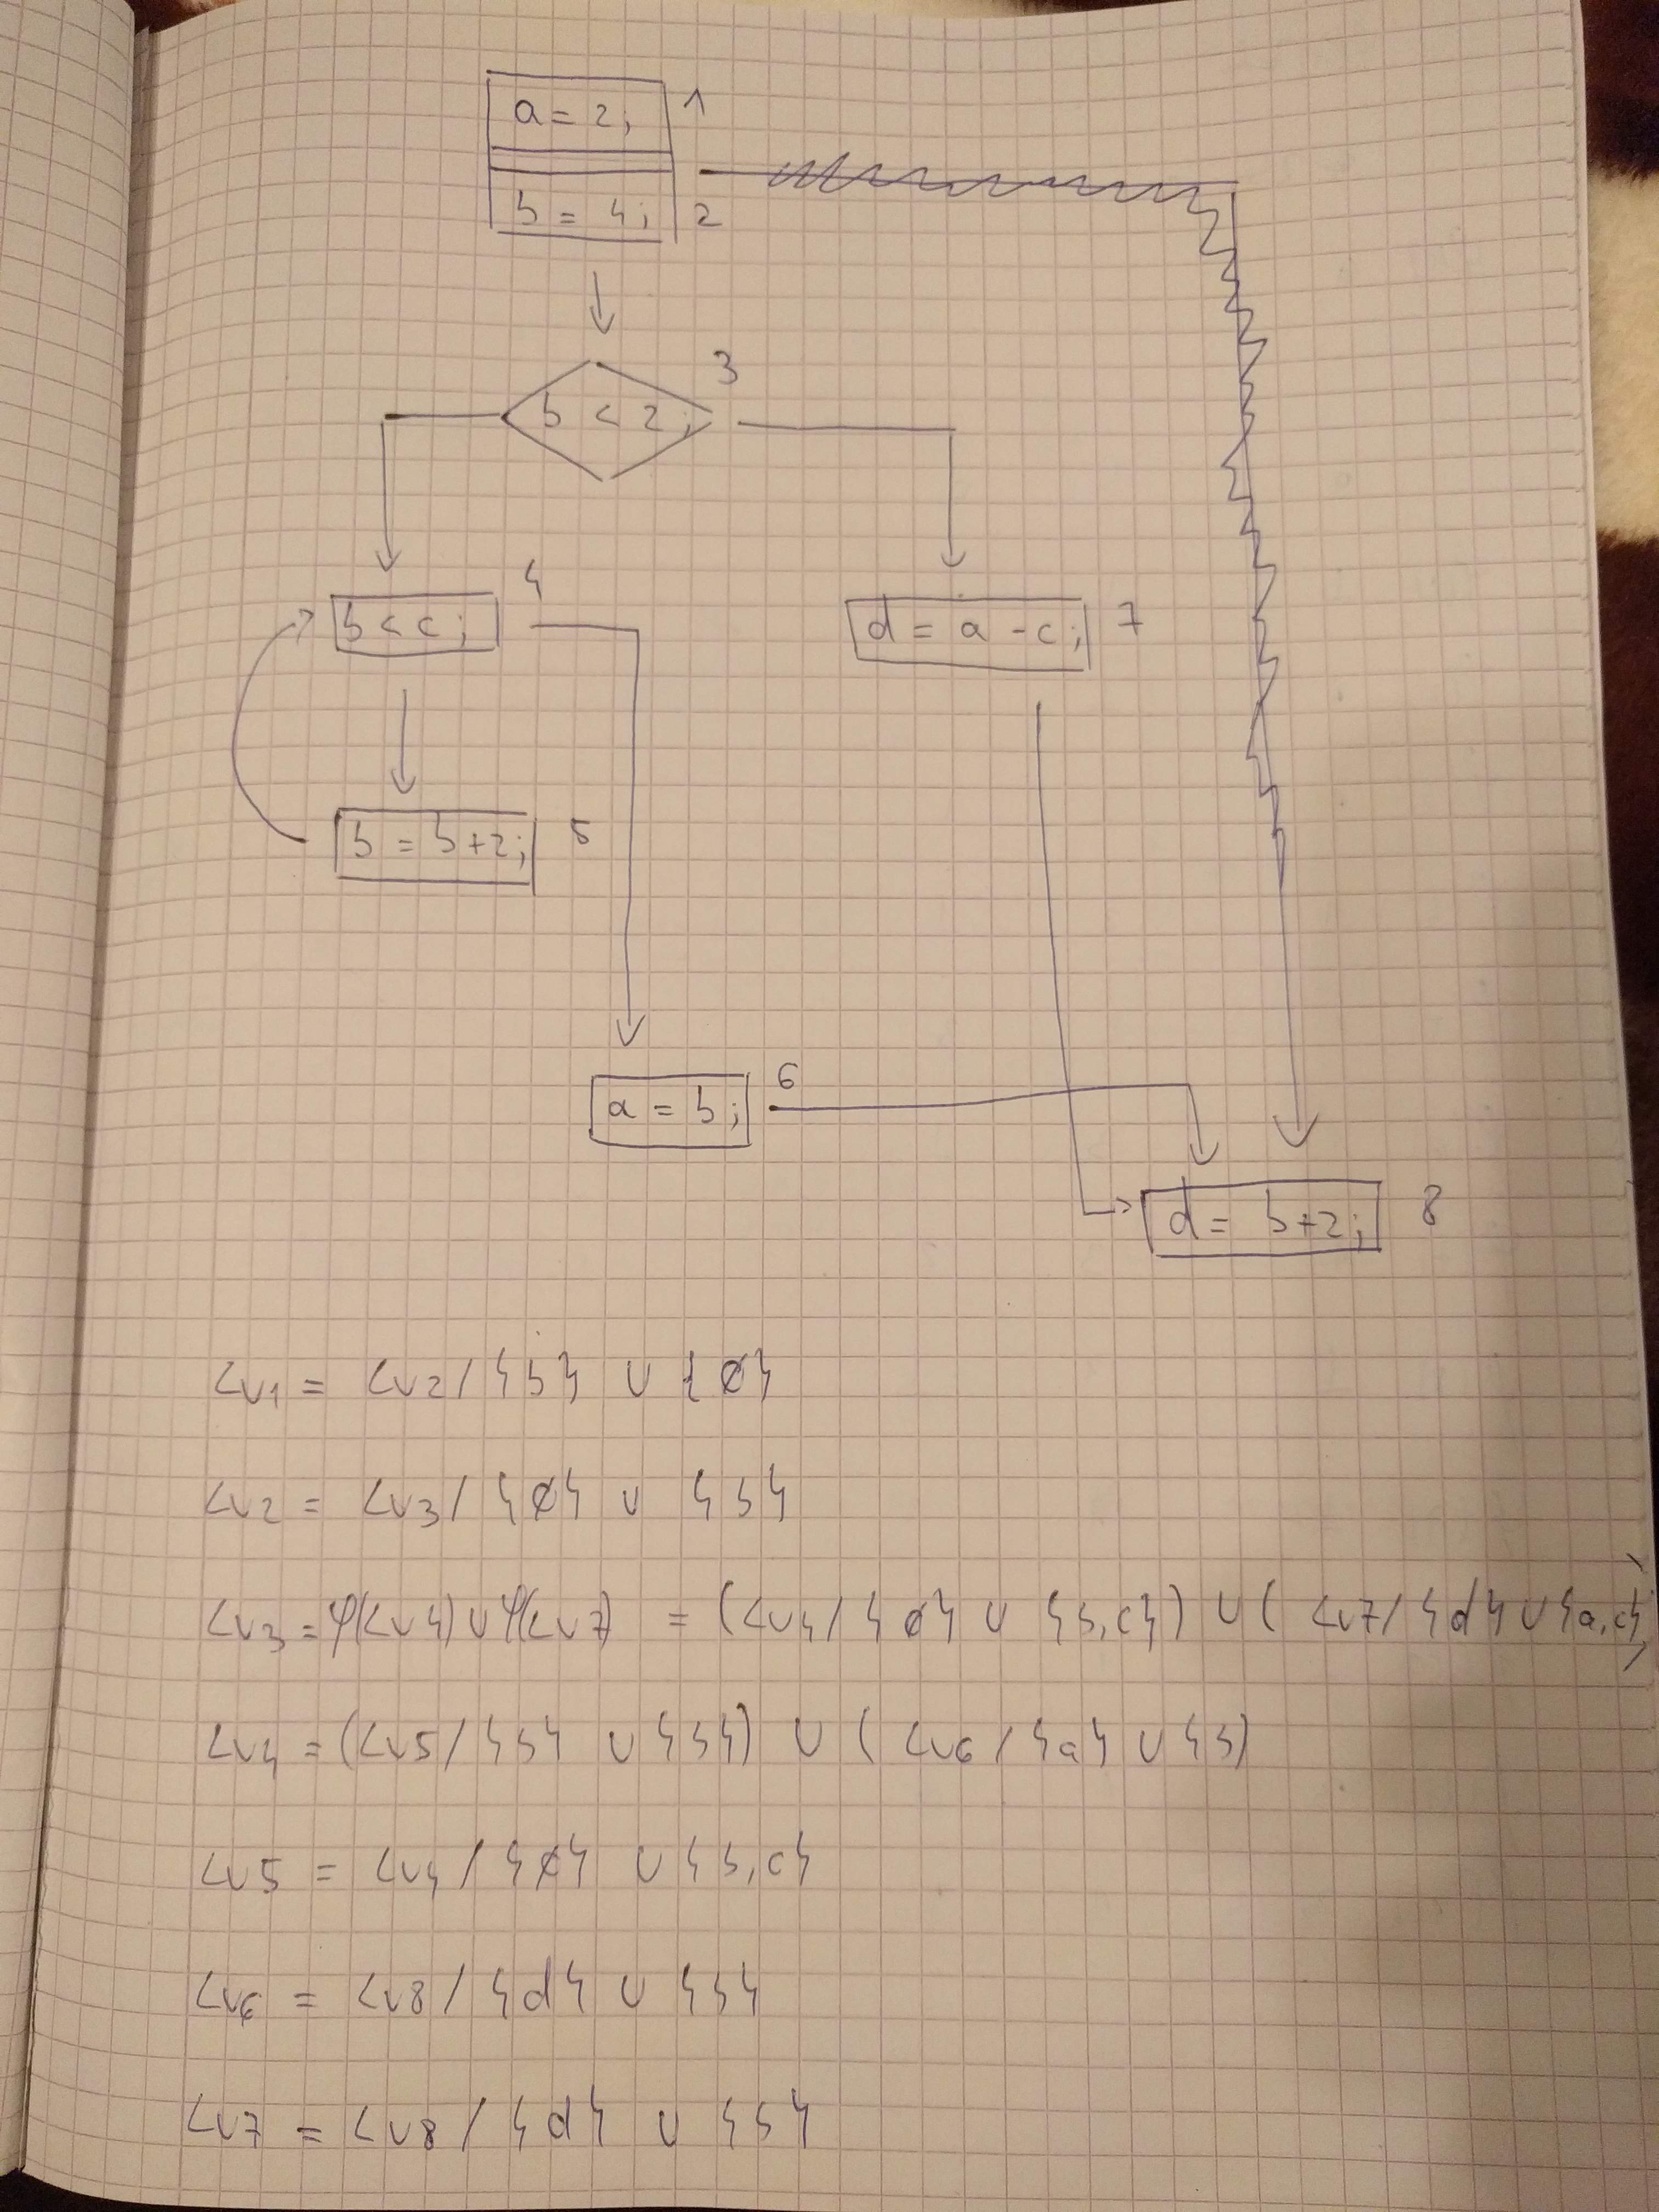 a = 2; 1
b = 4; 2
b < 2; 3
b < c; 4
d = a - c; 7
b = b+2; 5
a = b; 6
d = b+2; 8
Lv1 = Lv2 / {b} ∪ {ø}
Lv2 = Lv3 / {ø} ∪ {b}
Lv3 = φ(Lv4) ∪ φ(Lv7) = (Lv4 / {ø} ∪ {b,c}) ∪ ( Lv7 / {d} ∪ {a,c})
Lv4 = (Lv5 / {b} ∪ {b}) ∪ ( Lv6 / {a} ∪ {b)
Lv5 = Lv4 / {ø} ∪ {b,c}
Lv6 = Lv8 / {d} ∪ {b}
Lv7 = Lv8 / {d} ∪ {b}